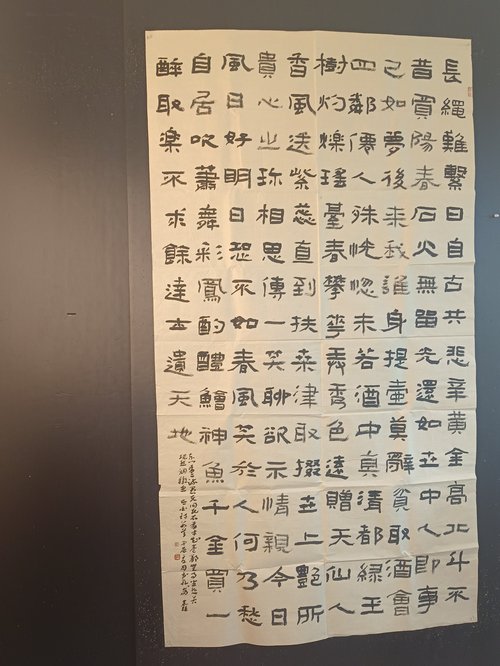 長繩難繫日自古共悲辛黃金高北斗不
昔買陽春石火無留光還如世中人即事
已如夢後來我誰身提壺莫辭貧取酒會
四鄰僊人殊恍惚未若酒中真清都綠玉
樹灼爍瑤臺春攀花弄秀色遠贈天仙人
香風送紫蕊直到扶桑津取掇世上艷所
貴心之珍相思傳一笑聊欲示情親今日
風日好明日恐不如春風笑於人何乃愁
自居吹蕭舞彩鳳酌醴鱠神魚千金買一
醉取樂不求餘達士遺天地